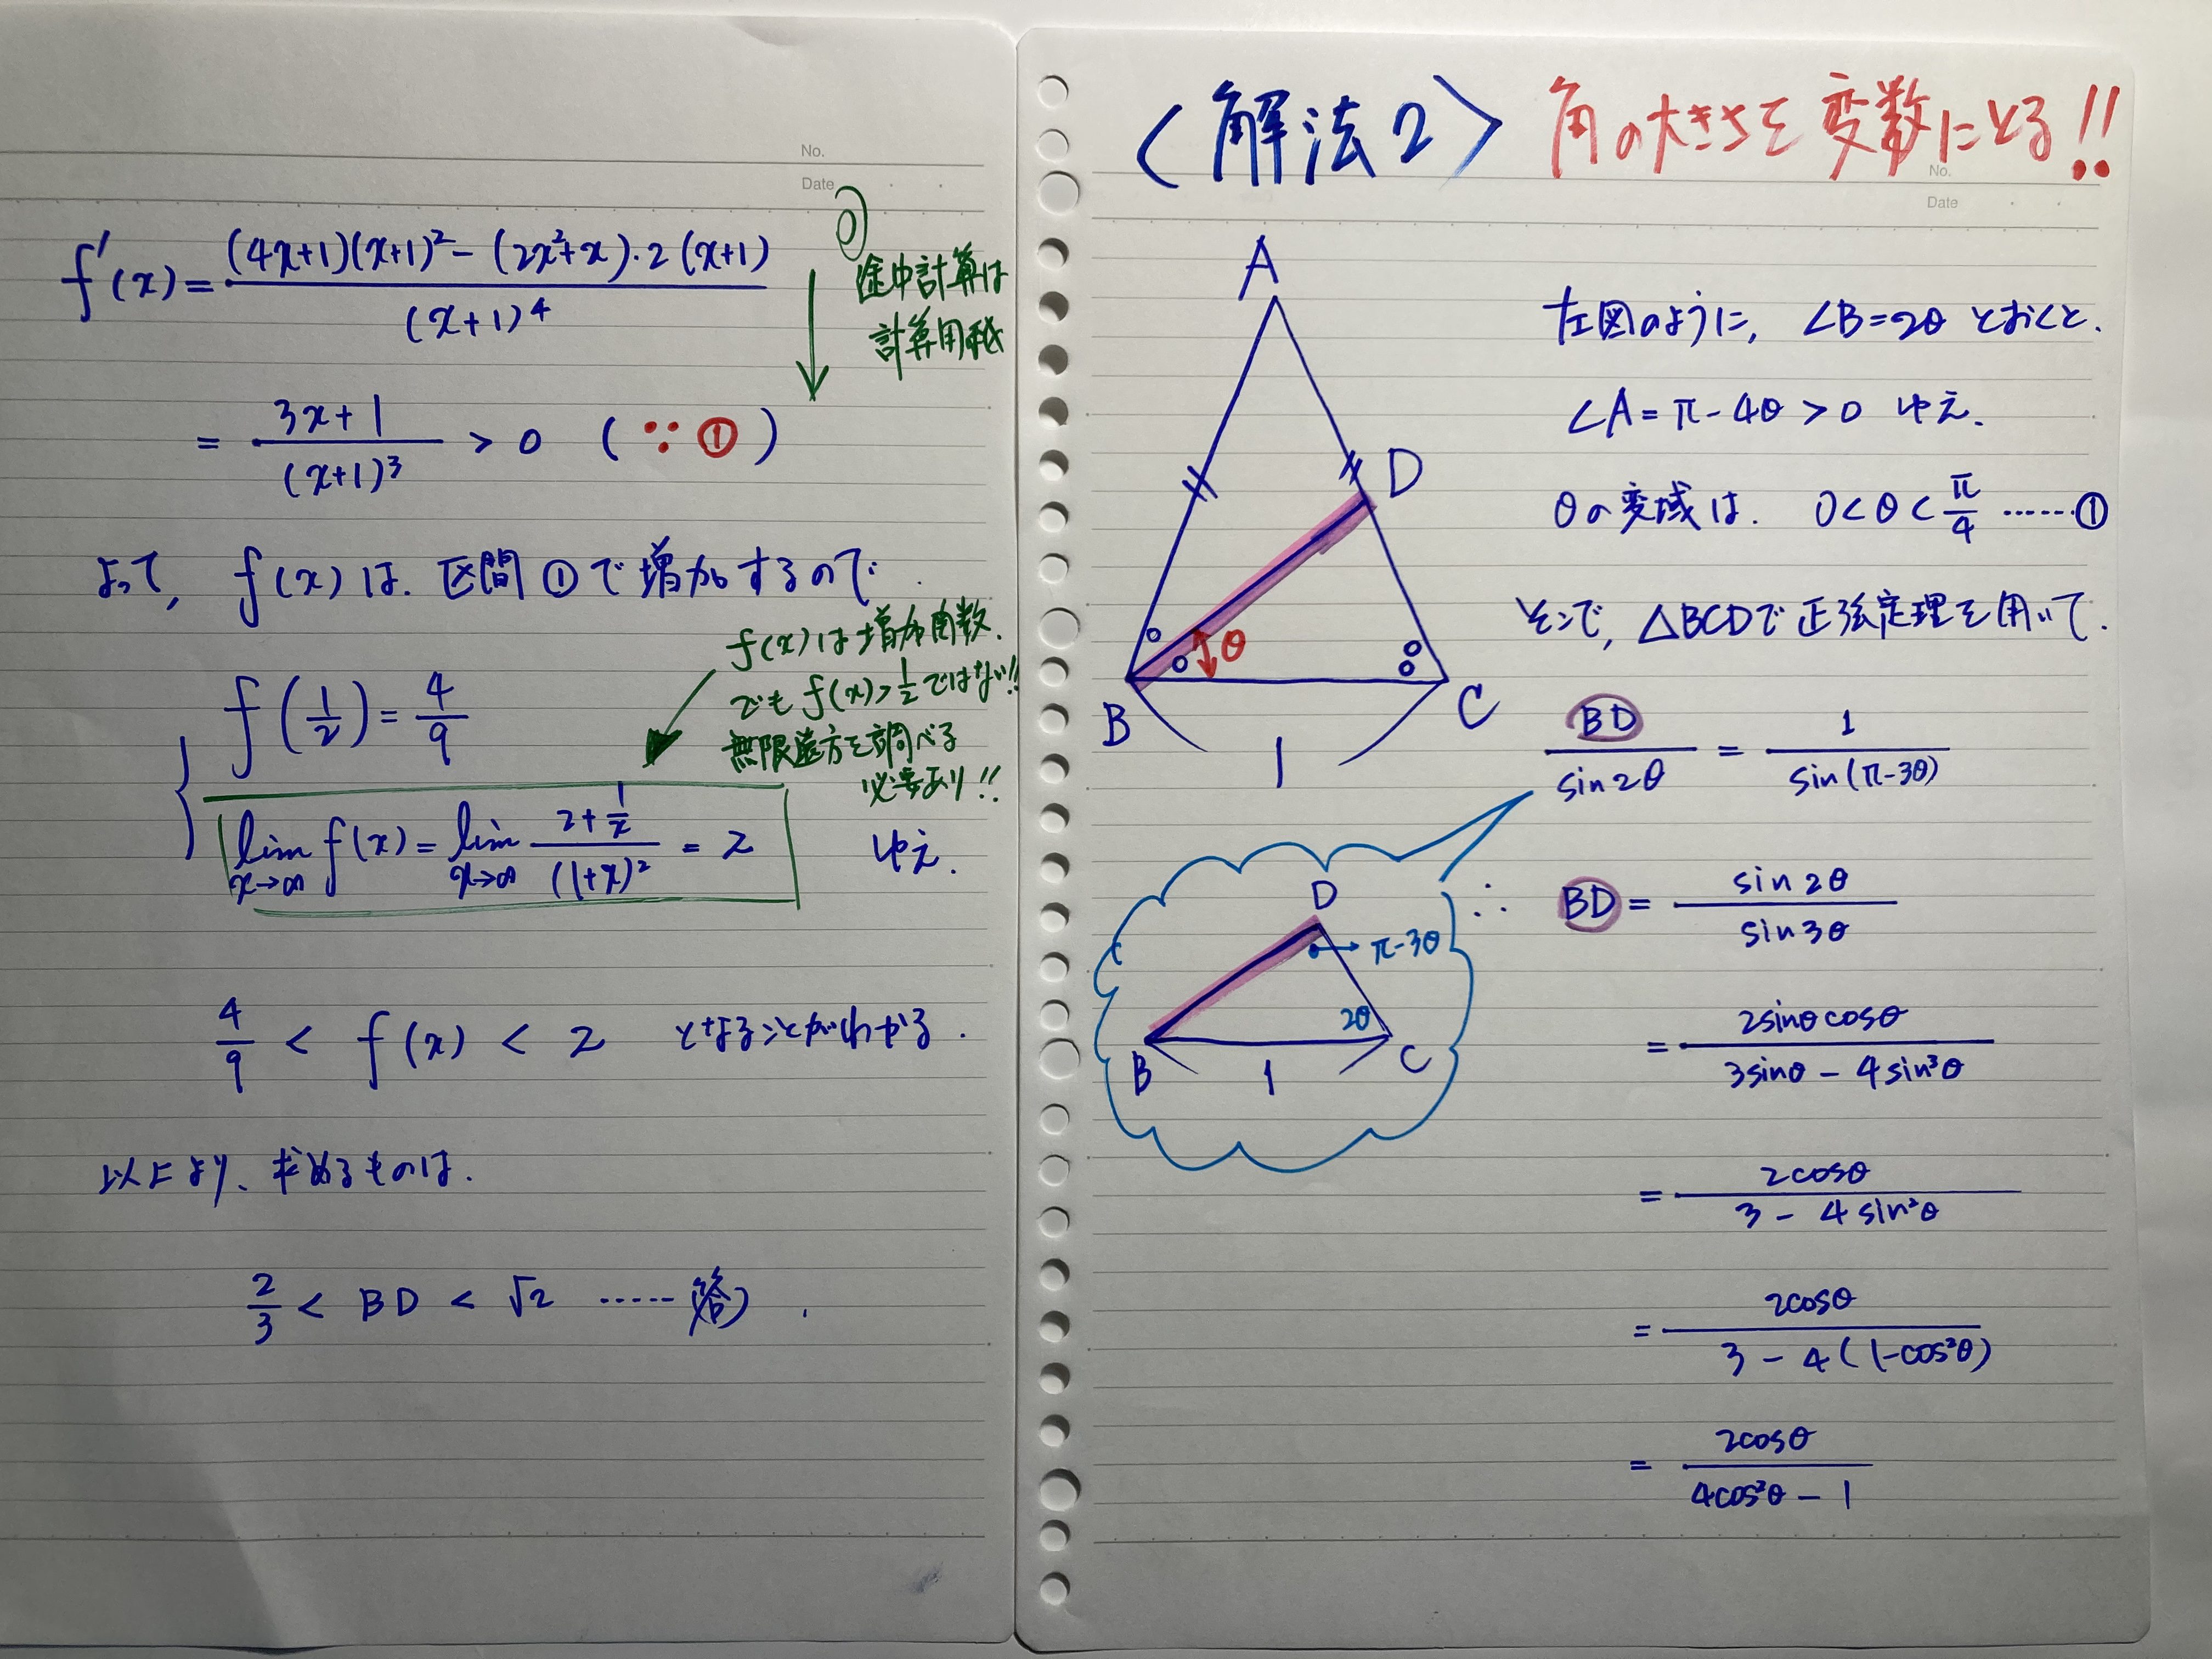 No.
Date
f'(x) = \frac{(4x+1)(x+1)^2 - (2x^2+x)・2(x+1)}{(x+1)^4}
途中計算は
計算用紙
= \frac{3x+1}{(x+1)^3} > 0 (∵ ①)
よって, f(x) は. 区間 ① で増加するので.
f(x)は増加関数.
でも f(x)>\frac{1}{2}ではない!!
無限遠方を調べる
必要あり!!
f(\frac{1}{2}) = \frac{4}{9}
\lim_{x→∞} f(x) = \lim_{x→∞} \frac{2+\frac{1}{x}}{(1+x)^2} = 2 ゆえ.
\frac{4}{9} < f(x) < 2 となることがわかる.
以上より、求めるものは.
\frac{2}{3} < BD < √2 ……(答).
<解法2> 角の大きさを変数にとる!!
No.
Date
A
D
B
C
θ
1
左図のように, ∠B=2θ とおくと.
∠A = π-4θ > 0 ゆえ.
θの変域は. 0<θ<\frac{π}{4} ……①
そこで, △BCDで正弦定理を用いて.
\frac{BD}{sin2θ} = \frac{1}{sin(π-3θ)}
D
π-3θ
2θ
B
1
C
∴ BD = \frac{sin2θ}{sin3θ}
= \frac{2sinθcosθ}{3sinθ - 4sin^3θ}
= \frac{2cosθ}{3 - 4sin^2θ}
= \frac{2cosθ}{3 - 4(1-cos^2θ)}
= \frac{2cosθ}{4cos^2θ - 1}